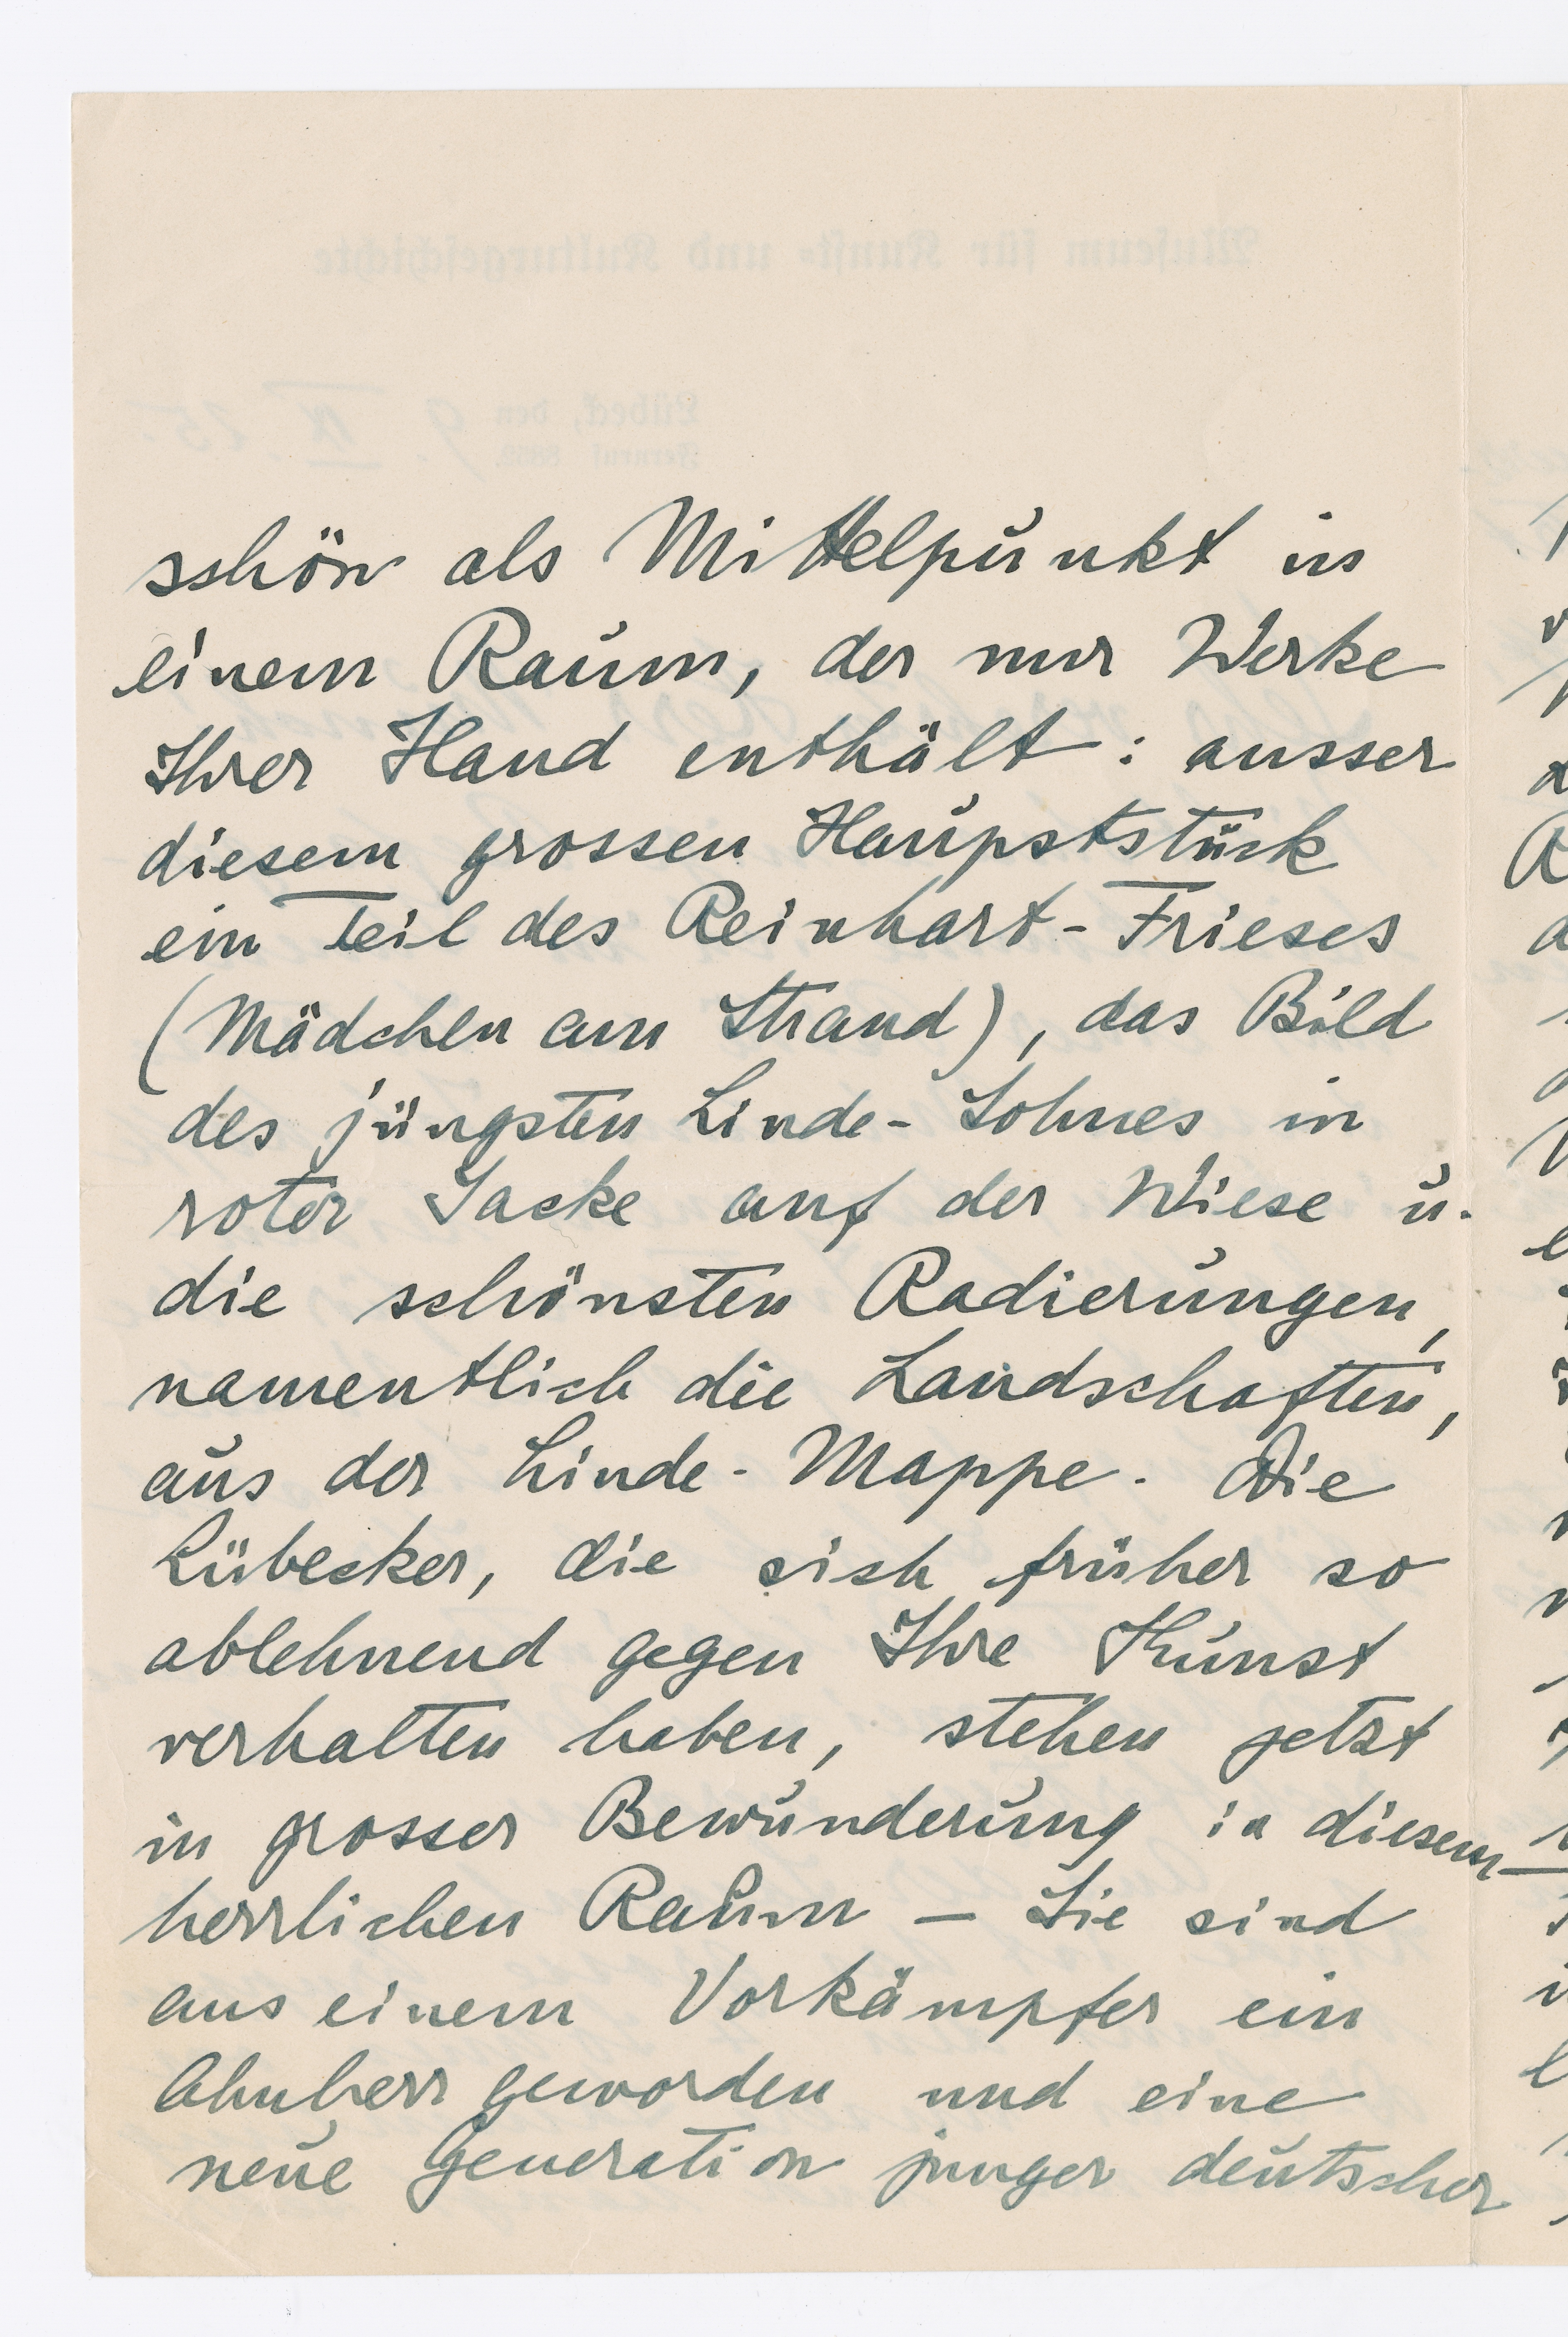 schön als Mittelpunkt in
einem Raum, der nur Werke
Ihrer Hand enthält: ausser
diesem grossen Haupststück
ein Teil des Reinhart-Frieses
(Mädchen am Strand), das Bild
des jüngsten Linde-Sohnes in
roter Jacke auf der Wiese u.
die schönsten Radierungen,
namentlich die Landschaften,
aus der Linde-Mappe. Die
Lübecker, die sich früher so
ablehnend gegen Ihre Kunst
verhalten haben, stehen jetzt
in grosser Bewunderung in diesem
herrlichen Raum – Sie sind
aus einem Vorkämpfer ein
Ahnherr geworden und eine
neue Generation junger deutscher